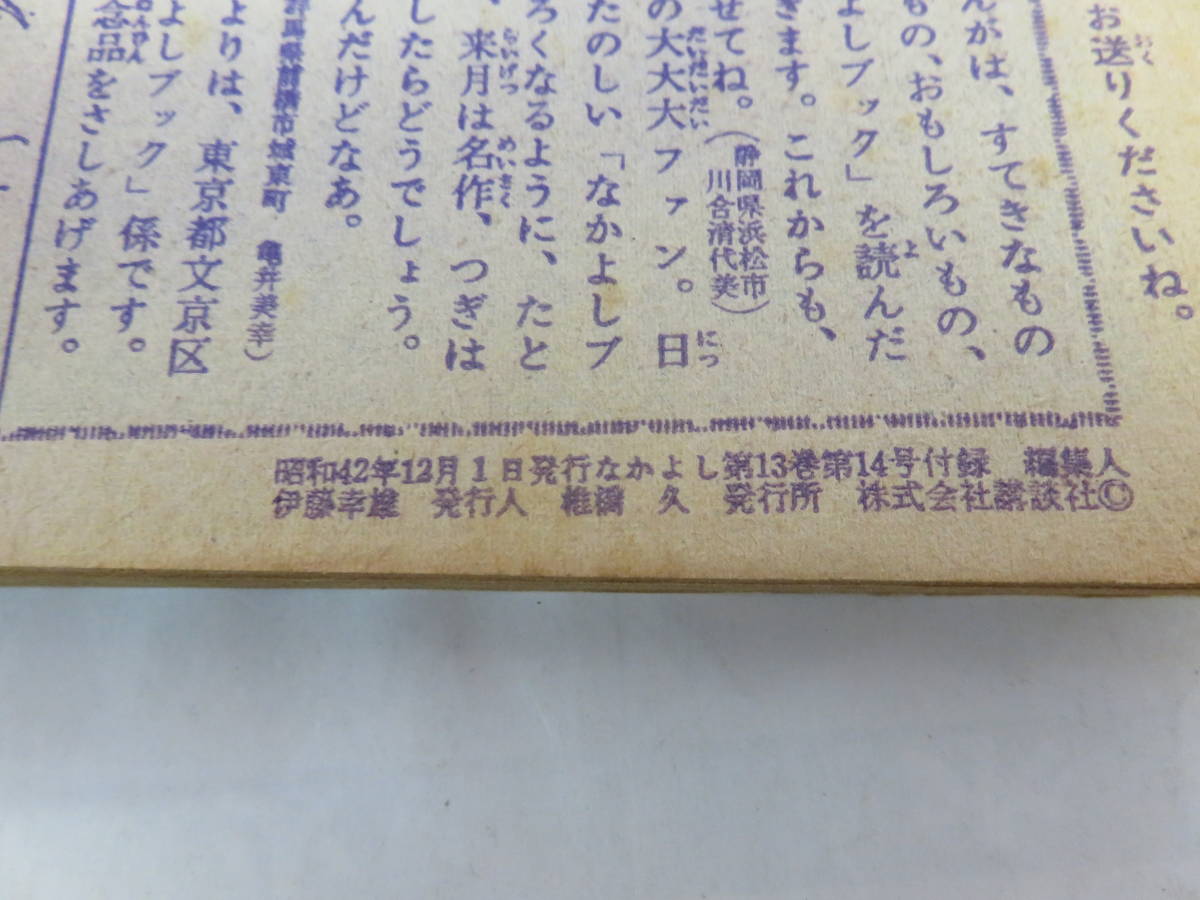 お送りくださいね。
んが、すてきなもの
もの、おもしろいもの、
よしブック」を読んだ
きます。これからも、
せてね。(静岡県浜松市 川合清代美)
の大大大ファン。日
たのしい「なかよしブ
ろくなるように、たと
、来月は名作、つぎは
したらどうでしょう。
んだけどなあ。
県前橋市城東町 亀井美幸)
よりは、東京都文京区
よしブック」係です。
念品をさしあげます。
昭和42年12月1日発行なかよし第13巻第14号付録 編集人
伊藤幸雄 発行人 椎橋 久 発行所 株式会社講談社©